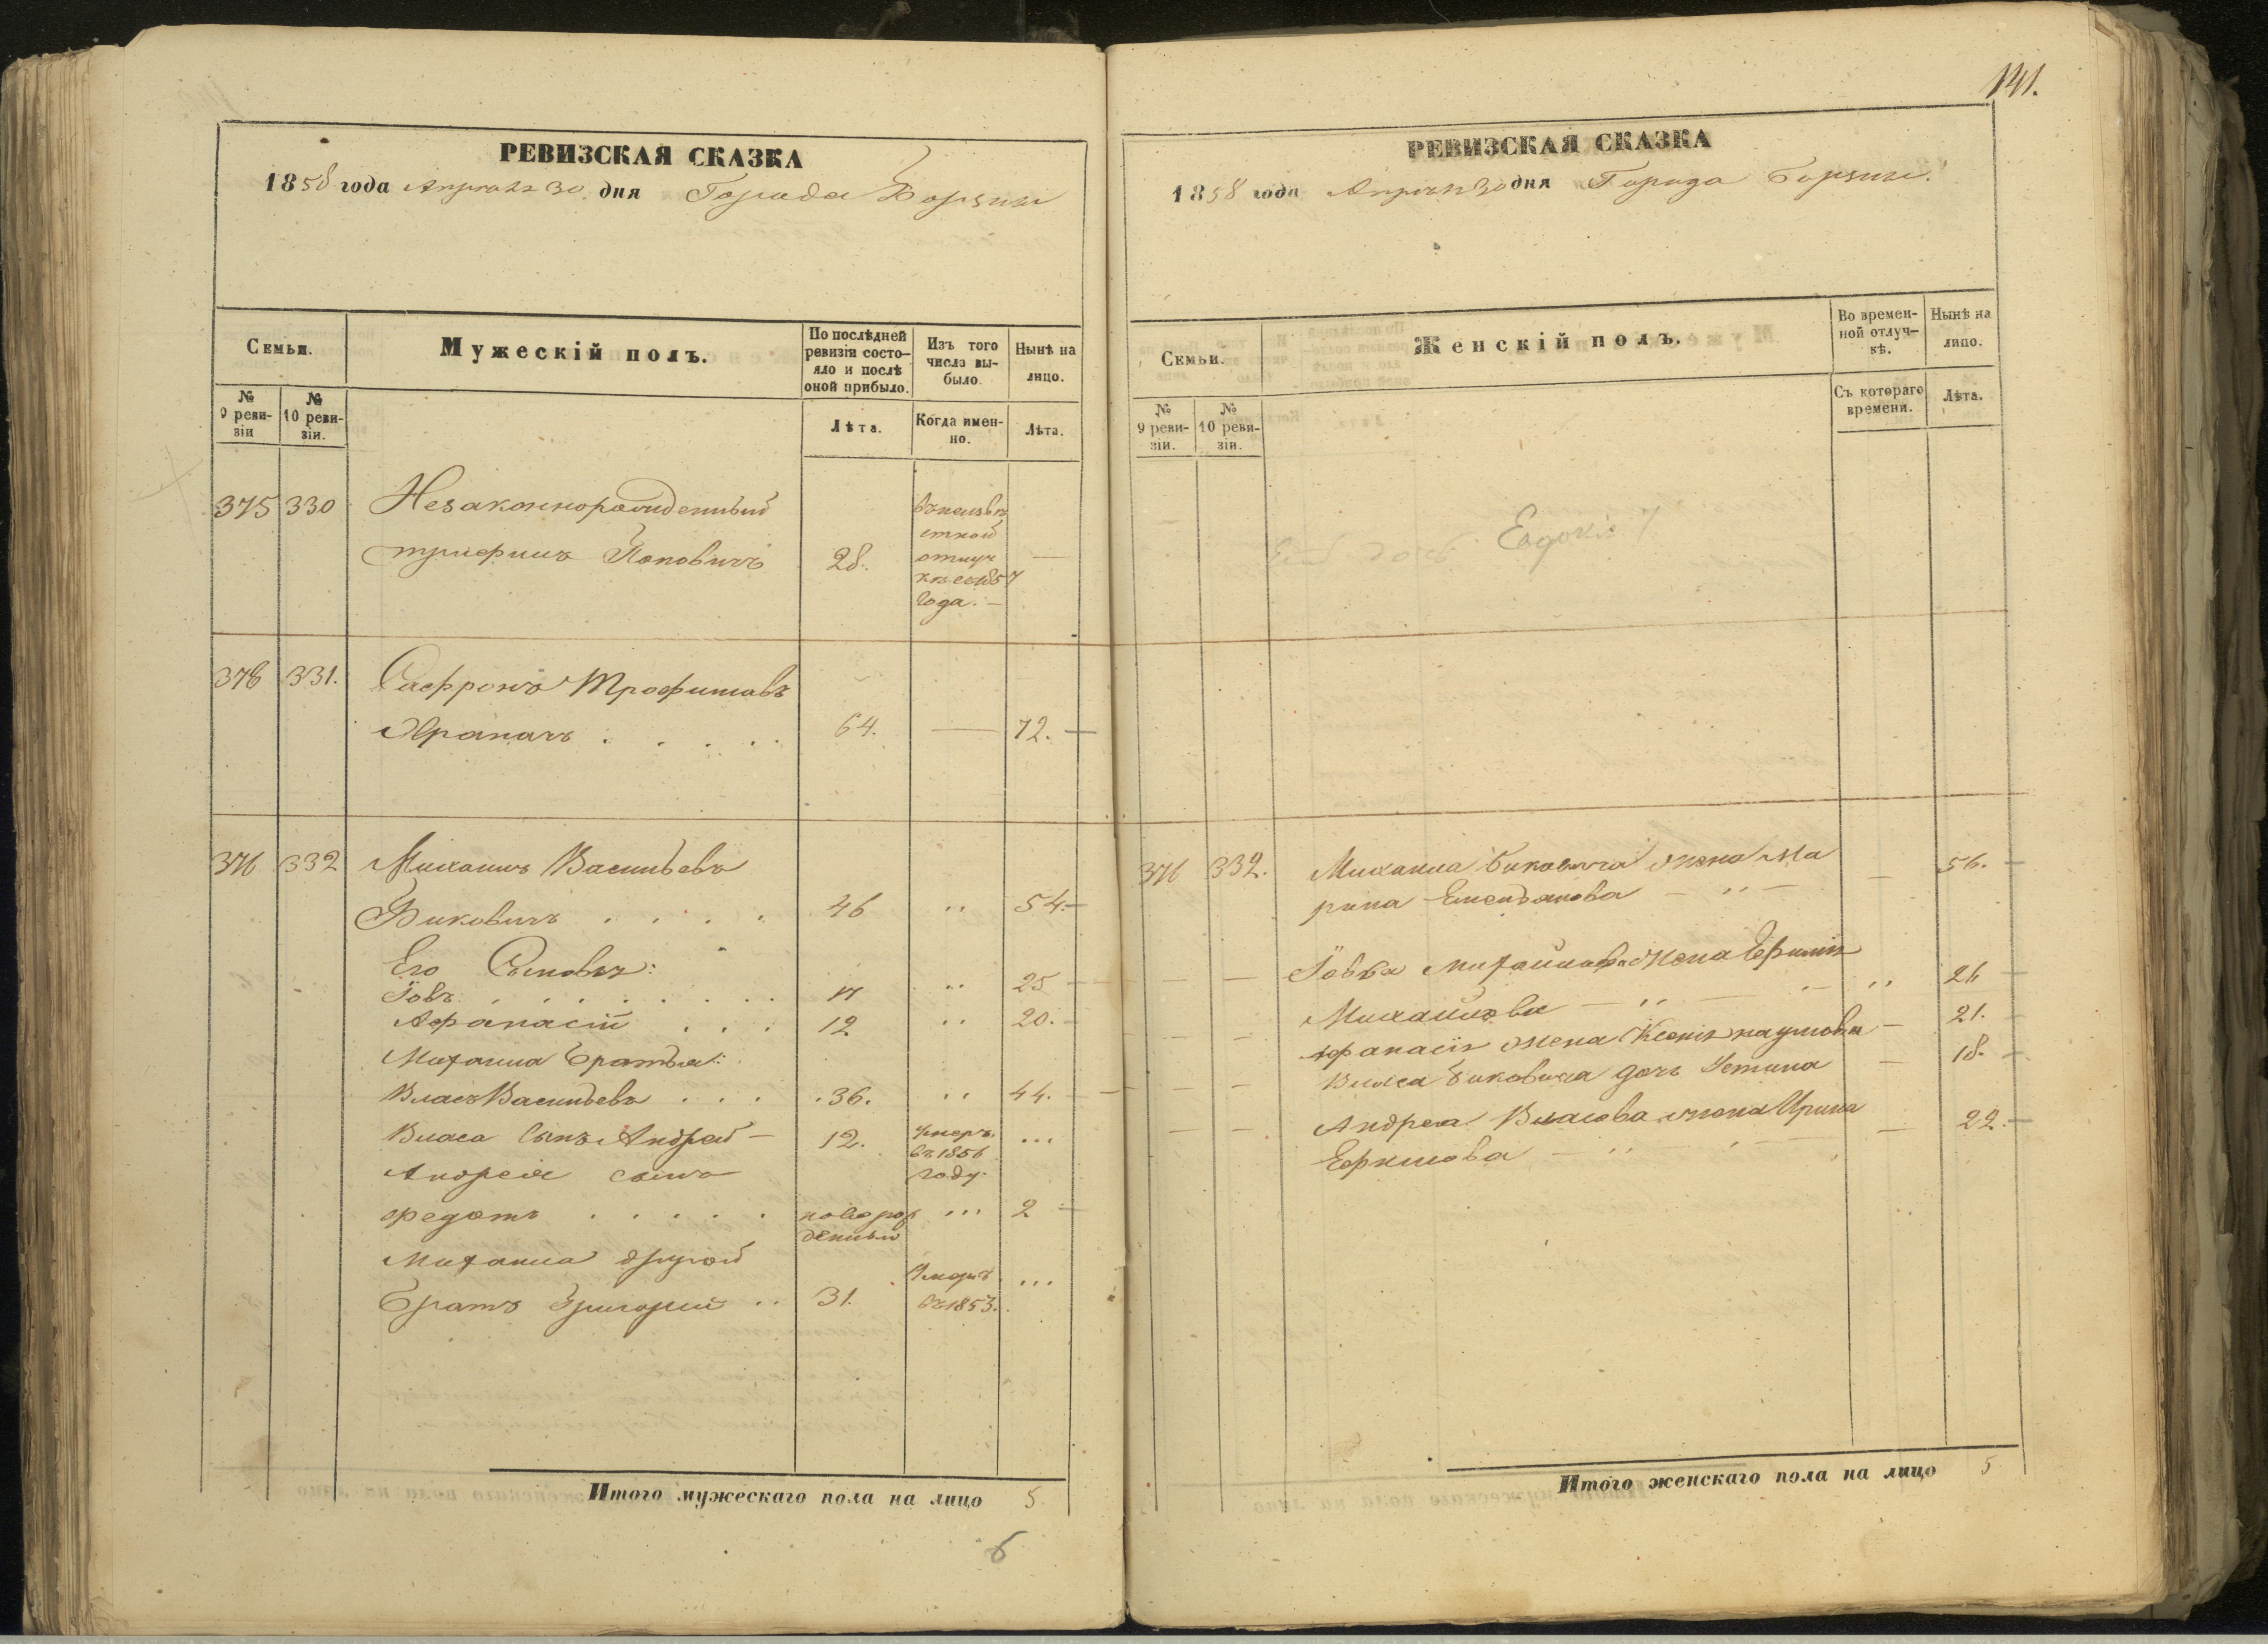 РЕВИЗСКАЯ СКАЗКА
1858 года Апреля 30 дня Города Борзны
Семьи.
Мужескій полъ.
По послѣдней ревизіи состо-
яло и послѣ оной прибыло.
Изъ того числа вы-
было.
Нынѣ на лицо.
№ 9 реви-
зіи
№ 10 реви-
зіи.
Лѣта.
Когда имен-
но.
Лѣта.
375 330 Незаконнорожденный
трифинъ Поповичъ 28.
въ неизвѣ
стной
отлуч
кѣ съ 1857
года. —
376 331. Сафронъ Трофимовъ
Храпачъ . . . . . 64. — 72. —
376 332 Михаилъ Васильевъ
Биковичъ . . . . 46 " 54. —
Его Сыновья:
Іовъ . . . . . . . . 17 " 25
Афанасій . . . 12 " 20. —
Михаила братья:
Власъ Васильевъ . . . 36. " 44. —
Власа сынъ Андрей — 12. умеръ
въ 1856
году. ...
Андрея сынъ
федотъ . . . . . новорож
денный ... 2 —
Михаила другой
братъ Григорій .. 31. Умеръ
въ 1853. ...
Итого мужескаго пола на лицо 5
6
141.
РЕВИЗСКАЯ СКАЗКА
1858 года Апреля 30 дня Города Борзны.
Семьи.
Женскій полъ.
Во времен-
ной отлуч-
кѣ.
Нынѣ на лицо.
№ 9 реви-
зіи.
№ 10 реви-
зіи.
Съ котораго времени.
Лѣта.
Евдокі
376 332. Михаила Биковича жена Ма
рина — " — — 56. —
Іовва Михайлова жена Ефимія
Михайлова — " — " 26 —
Афанасія жена Ксенія наумова — 21. —
Власа Биковича дочь Устина — 18. —
Андрея Власова жена Ирина
Ефимова — " — 22. —
Итого женскаго пола на лицо 5